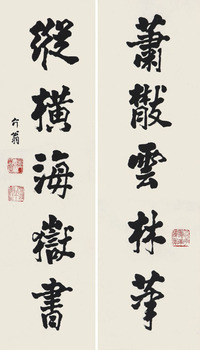 蕭散雲林筆
縱橫海嶽書
翁